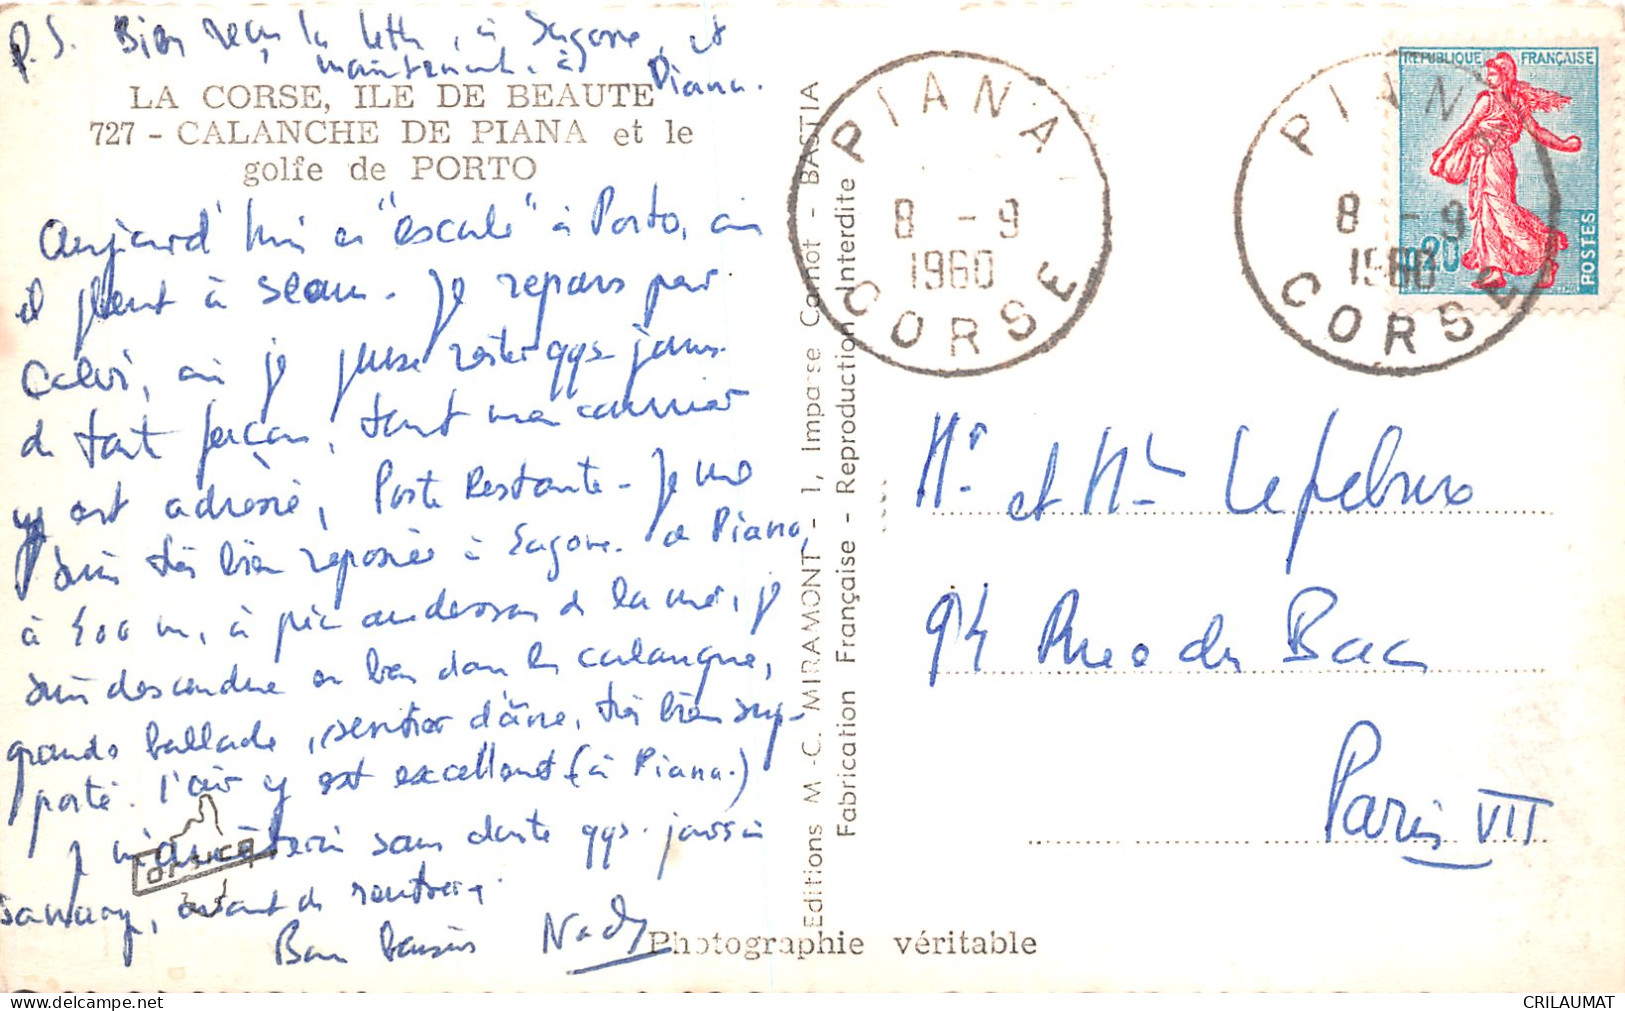 P.S. Bien reçu la lettre, à Sagone, et
maintenant, à Piana.
LA CORSE, ILE DE BEAUTE
727 - CALANCHE DE PIANA et le
golfe de PORTO
Aujourd'hui en "escale" à Porto, où
il pleut à seau. Je repars pour
Calvi, où je pense rester qqs jours
de tout façon, tout mon courrier
y est adressé, Poste Restante. Je me
suis très bien reposée à Sagone. De Piana,
à 400 m, à pic au dessus de la mer, je
suis descendue en bas dans les calanques,
grande ballade, sentier d'âne, très bien sup-
porté. l'air y est excellent (à Piana.)
Je m'arrêterai sans doute qqs. jours à
Sanary, avant de rentrer.
Bons baisers Nady
Photographie véritable
Editions M.-C. MIRAMONT - 1, Impasse Carnot - BASTIA
Fabrication Française - Reproduction Interdite
PIANA
8 - 9
1960
CORSE
PIANA
8 - 9
1960
CORSE
REPUBLIQUE FRANÇAISE
0,20
POSTES
Mr et Mme Lefebvre
94 Rue du Bac
Paris VII
CRILAUMAT